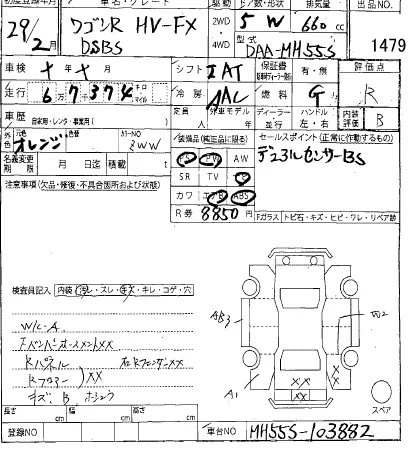 初度登録年月 車名・グレード 駆動 ドア数・形状 排気量 出品NO.
29/2月 ワゴンR HV-FX DSBS 2WD・4WD 5 W 660 cc
DAA-MH55S 1479
車検 年 月 シフト IAT 保証書 有・無 評価点
走行 6万7千374 キロ マイル 冷房 AAC 燃料 G R
車歴 自家用・レンタ・事業用( ) 定員 外車モデル ディーラー 並行 ハンドル 左・右 内装評価 B
外色 元色 オレンジ カラーNO ZWW 装備品(純正品に限る) セールスポイント(正常に作動するもの)
名義変更期限 月 日迄 積載 t PS PW AW デュアルセンサーBS
注意事項(欠品・修復・不具合箇所および状態) SR TV
カワ エアB ABS
R券 8850円
Fガラス トビ石・キズ・ヒビ・ワレ・リペア跡
検査員記入 内装 汚レ・スレ・キズ・キレ・コゲ・穴
W/C・A
AB3 W2
Rパネル 右Rフェンダー××
Rフロアー ××
キズ、B A1 ×× ××
スペア
長さ cm 幅 cm 高さ cm
登録NO 車台NO MH55S-103882